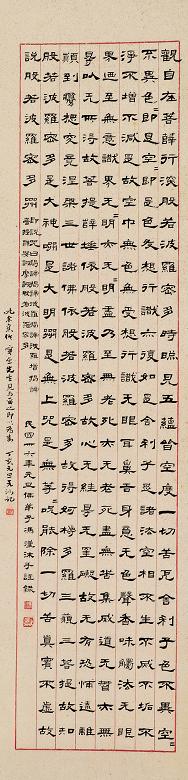 觀自在菩薩行深般若波羅密多時照見五蘊皆空度一切苦厄舍利子色不異空
〻不異色〻即是空〻即是色受想行識亦復如是舍利子是諸法空相不生不滅不垢不
淨不增不減是故空中無色無受想行識無眼耳鼻舌身意無色聲香味觸法無眼
界迺至無意識界無〻明亦無〻明盡乃至無老死亦無老死盡無苦集滅道無智亦無
得以無所得故菩提薩埵依般若波羅密多故心無罣礙無罣礙故無有恐怖遠離
顛倒夢想究竟涅槃三世諸佛依般若波羅密多故得阿耨多羅三藐三菩提故知
般若波羅密多是大神咒是大明咒是無上咒是無等〻咒能除一切苦真實不虛故
說般若波羅密多咒即說咒曰
民國卅六年元旦佛弟子馮漢沐手謹錄